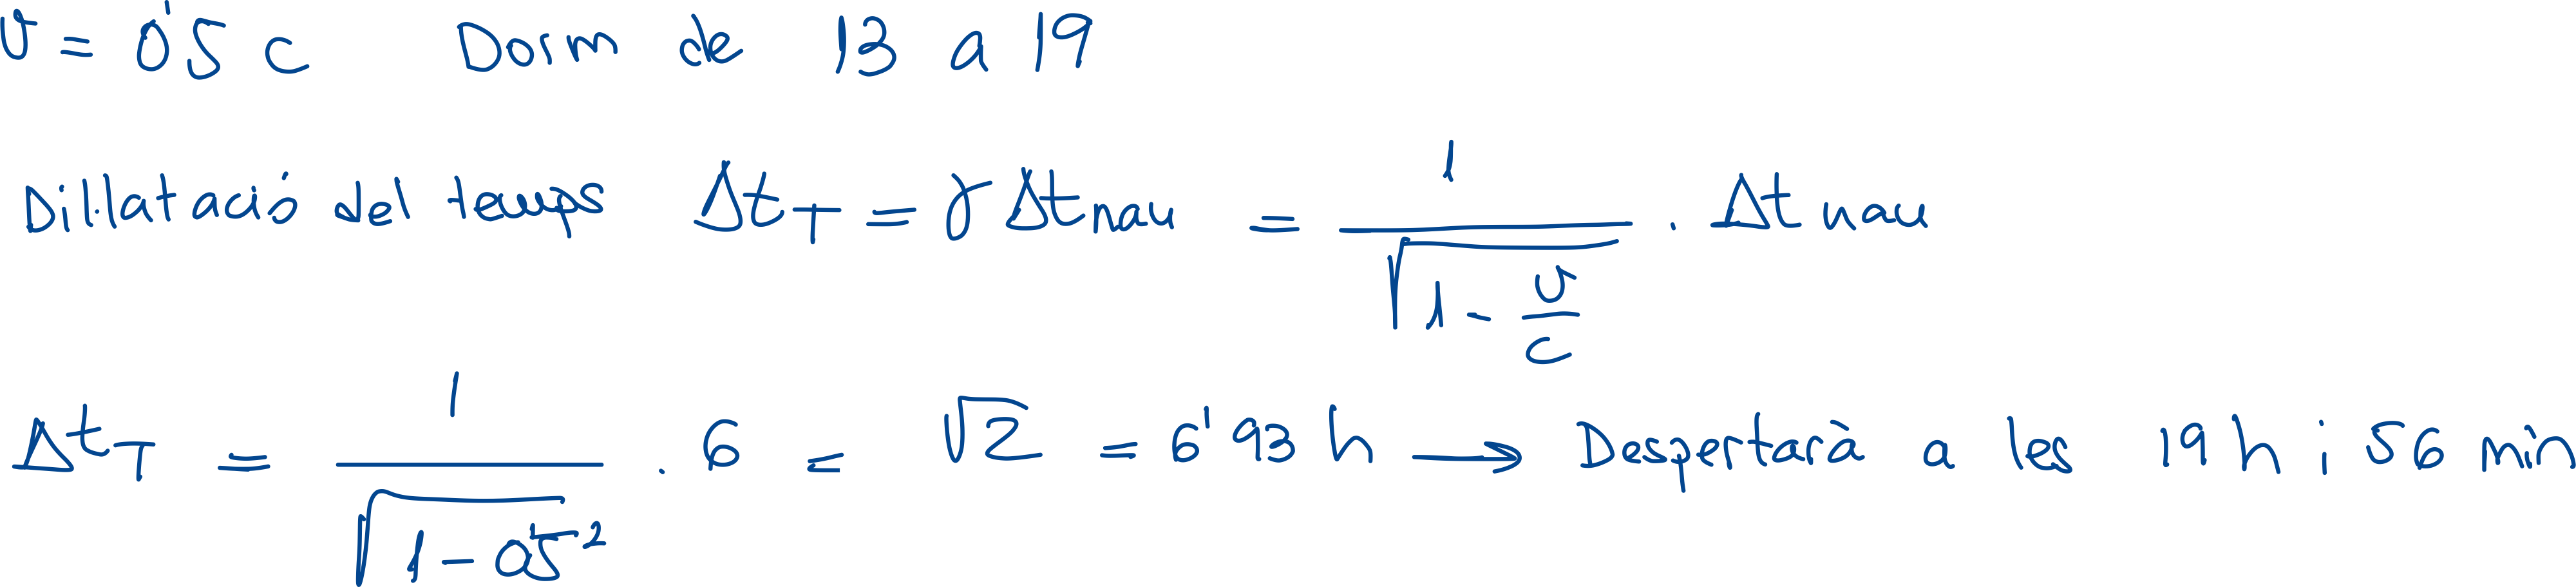 v = 0'5 c Dorm de 13 a 19
Dil·latació del temps Δt_T = γ Δt_nau = 1 / √(1 - v/c) · Δt nau
Δt_T = 1 / √(1 - 0'5²) · 6 = √2 = 6'93 h → Despertarà a les 19 h i 56 min